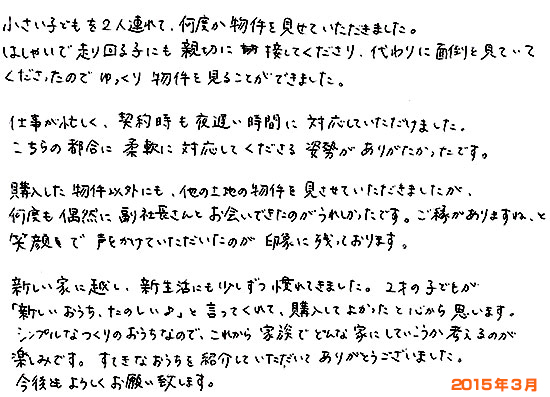 小さい子どもを2人連れて、何度か物件を見せていただきました。
はしゃいで走り回る子にも親切に接してくださり、代わりに面倒を見ていて
くださったのでゆっくり物件を見ることができました。
仕事が忙しく、契約時も夜遅い時間に対応していただけました。
こちらの都合に柔軟に対応してくださる姿勢がありがたかったです。
購入した物件以外にも、他の土地の物件を見させていただきましたが、
何度も偶然に副社長さんとお会いできたのがうれしかったです。ご縁がありますね、と
笑顔で声をかけていただいたのが印象に残っております。
新しい家に越し、新生活にも少しずつ慣れてきました。2才の子どもが
「新しいおうち、たのしい♪」と言ってくれて、購入してよかったと心から思います。
シンプルなつくりのおうちなので、これから家族でどんな家にしていこうか考えるのが
楽しみです。すてきなおうちを紹介していただいてありがとうございました。
今後もよろしくお願い致します。
2015年3月